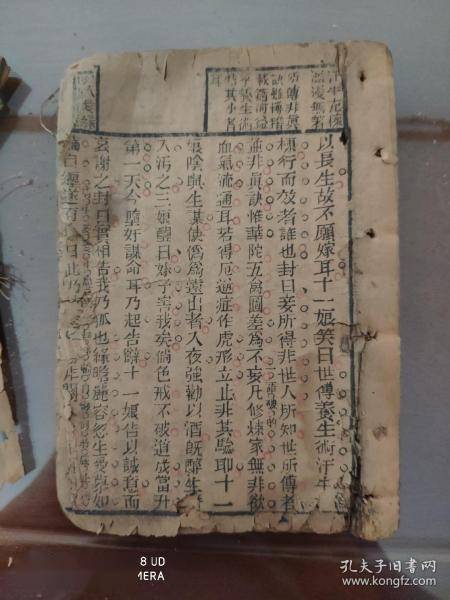 所傳非真
以長生故不願嫁耳十一娘笑曰世傳養生術汗牛
棟行而效者誰也封曰妾所得非世人所知世所傳者
並非真訣惟華陀五禽圖差為不妄凡修煉家無非欲
一語破的
血氣流通耳若得厄逆症作虎形立止非其驗耶十一
娘陰與生謀使偽為遠出者入夜強勸以酒既醉生
入污之三娘醒曰妹子害我矣倘色戒不破道成當升
第一天今墮奸謀命耳乃起告辭十一娘告以誠意而
哀謝之封曰實相告我乃狐也緣瞻麗容忽生愛慕如
繭自纏遂有今日此乃
8 UD
1ERA
孔夫子旧书网
www.kongfz.com